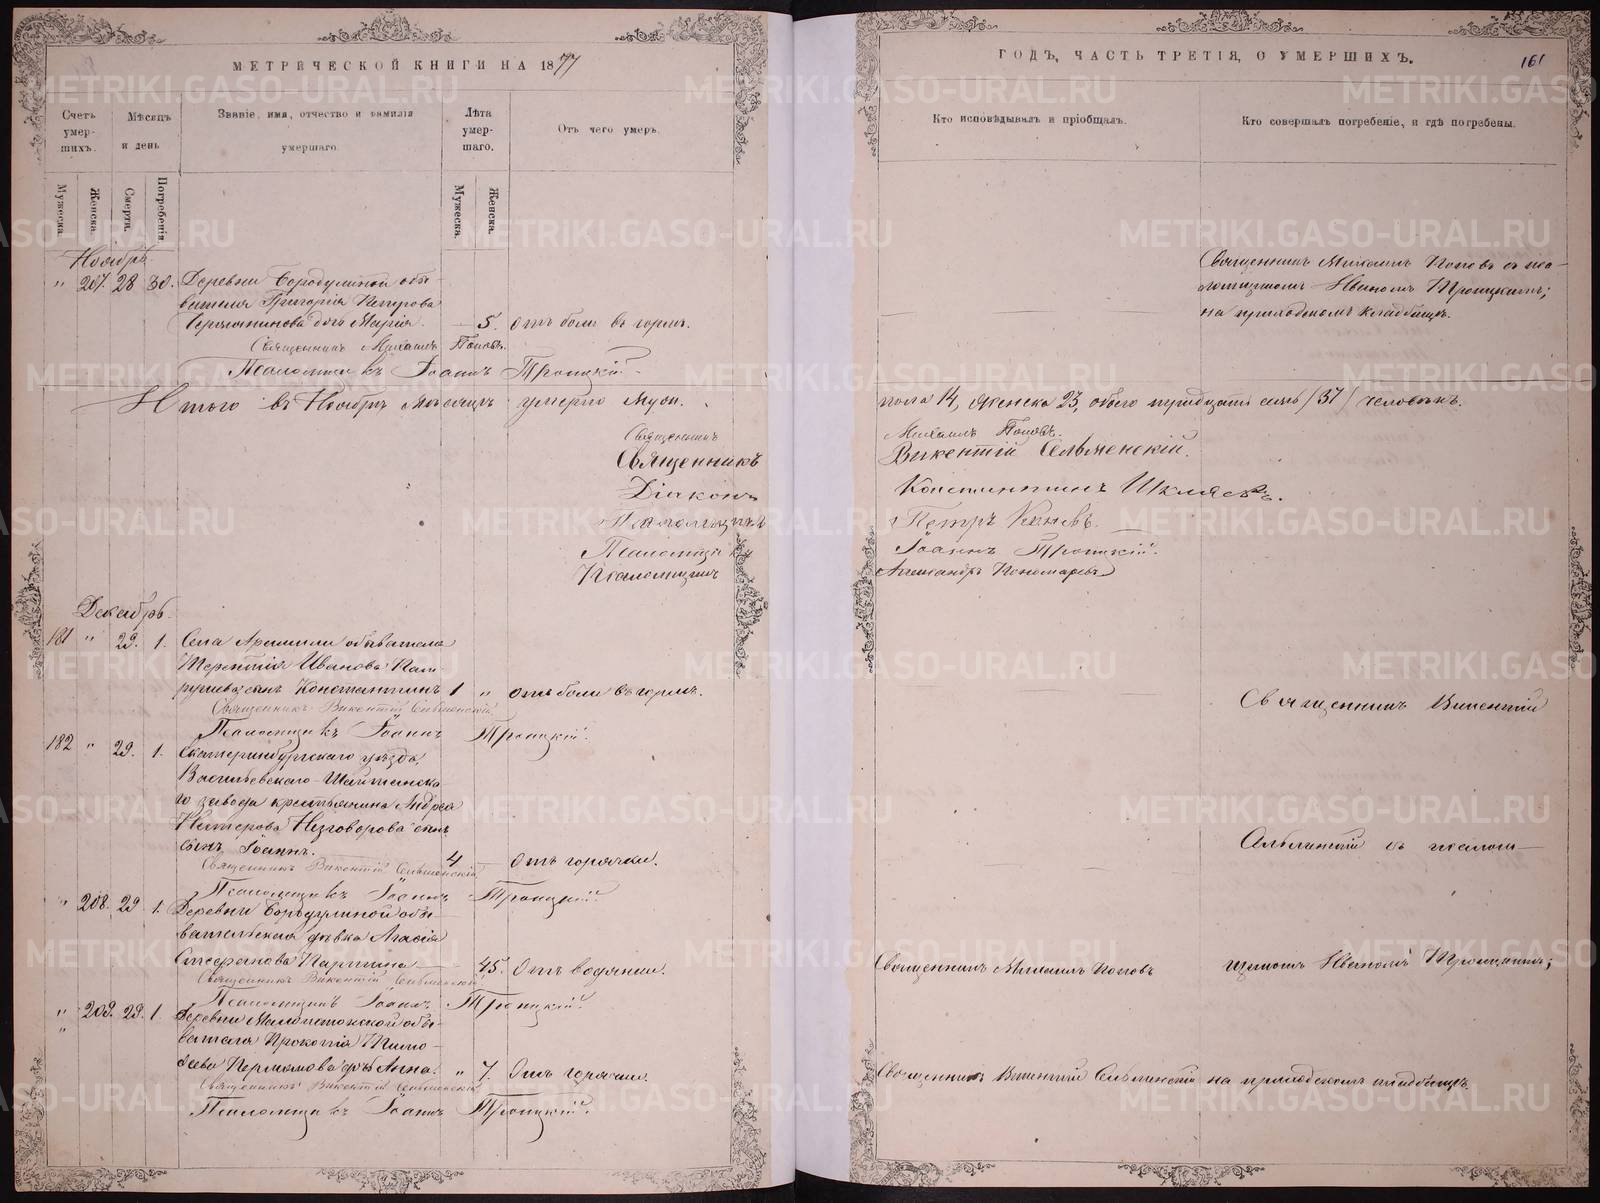 МЕТРИЧЕСКОЙ КНИГИ НА 1877
Счетъ умер-шихъ.
Мѣсяцъ и день
Званіе, имя, отчество и фамилія умершаго.
Лѣта умер-шаго.
Отъ чего умеръ.
Мужеска.
Женска.
Смерти.
Погребенія
Мужеска.
Женска.
Ноябрь.
" 207. 28 30. Деревни Бородулиной обы-
вателя Григорія Петрова
дочь Марія. 5. отъ боли въ горлѣ.
Священникъ Михаилъ Поповъ.
Псаломщикъ Іоаннъ Троицкій.
Итого въ Ноябрѣ мѣсяцѣ умерло муж.
Священникъ
Священникъ
Діаконъ
Псаломщикъ
Псаломщикъ
Псаломщикъ
Декабрь.
181 " 29. 1. Села Арамили обывателя
Терентія Иванова
сынъ Константинъ 1 " отъ боли въ горлѣ.
Священникъ Викентій Сельменскій
Псаломщикъ Іоаннъ Троицкій.
182 " 29. 1. Екатеринбургскаго уѣзда,
Васильевскаго-Шайтанска-
го завода крестьянина Андрея
Незговорова
сынъ Іоаннъ. 4 Отъ горячки.
Священникъ Викентій Сельменскій
Псаломщикъ Іоаннъ Троицкій.
" 208. 29 1. Деревни Бородулиной обы-
вательская дѣвка
Стефанова Паршина 45. Отъ водянки.
Священникъ Викентій Сельменскій
Псаломщикъ Іоаннъ Троицкій.
" 209. 29. 1. Деревни обы-
вателя Прокопія Тимо-
феева Пермякова дочь Анна. " 7. Отъ горячки.
Священникъ Викентій Сельменскій
Псаломщикъ Іоаннъ Троицкій.
ГОДЪ, ЧАСТЬ ТРЕТІЯ, О УМЕРШИХЪ.
161
Кто исповѣдывалъ и пріобщалъ.
Кто совершалъ погребеніе, и гдѣ погребены.
Священникъ Михаилъ Поповъ съ пса-
ломщикомъ Иваномъ Троицкимъ;
на приходскомъ кладбищѣ.
пола 14, женска 23, обоего тридцать семь /37/ человѣкъ.
Михаилъ Поповъ.
Викентій Сельменскій.
Константинъ Шкляевъ.
Петръ
Іоаннъ Троицкій.
Александръ Пономаревъ
Священникъ Викентій
Сельменскій съ псалом-
Священникъ Михаилъ Поповъ
щикомъ Иваномъ Троицкимъ;
Священникъ Викентій Сельменскій
на приходскомъ кладбищѣ.
METRIKI.GASO-URAL.RU